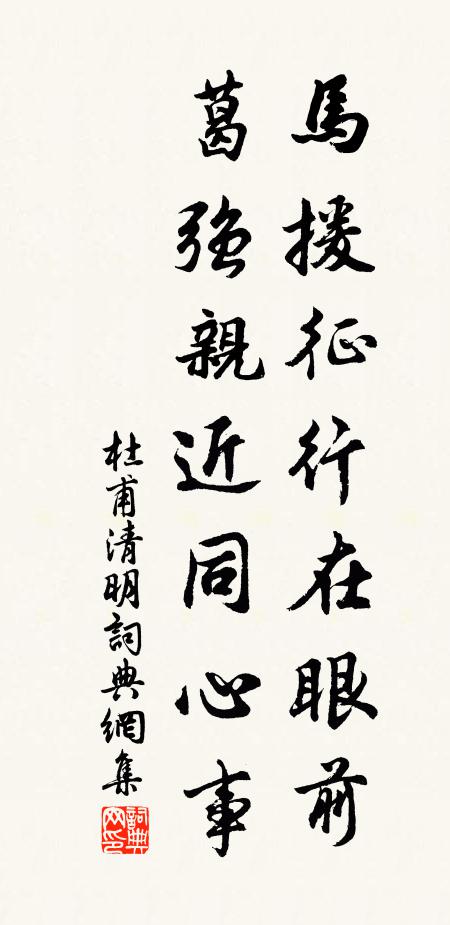 馬援征行在眼前
葛強親近同心事
杜甫清明詞典網集
詞典网印